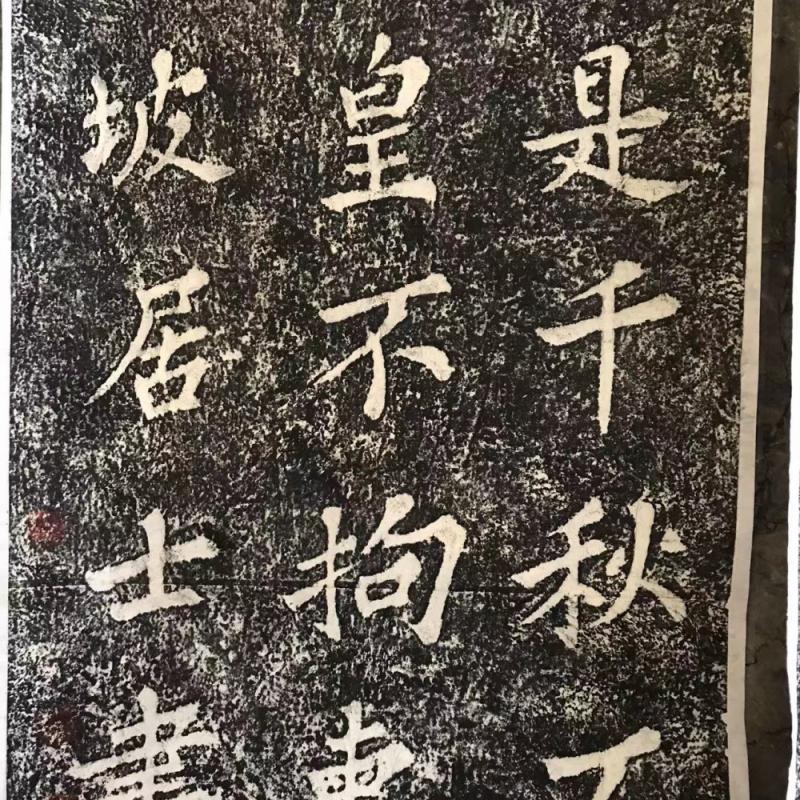 是千秋
皇不拘
坡居士書